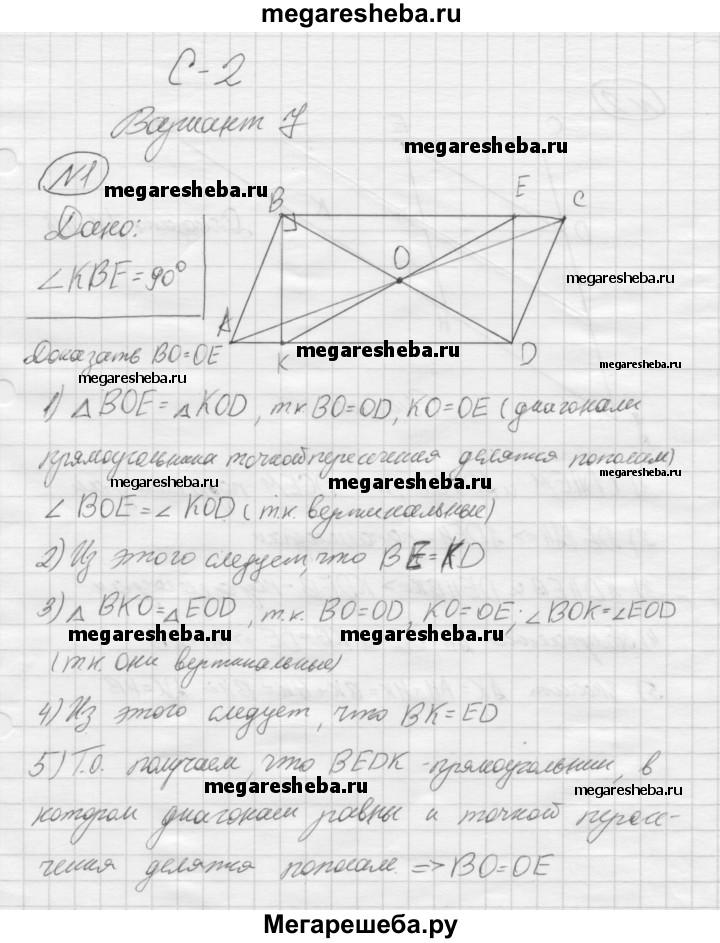 megaresheba.ru
С-2
Вариант 7
megaresheba.ru
№1
megaresheba.ru
B E C
Дано:
∠KBE=90°
O
megaresheba.ru
A K D
megaresheba.ru
Доказать BO=OE
megaresheba.ru
1) △BOE=△KOD, т.к. BO=OD, KO=OE (диагонали
прямоугольника точкой пересечения делятся пополам)
megaresheba.ru
megaresheba.ru
megaresheba.ru
∠BOE=∠KOD (т.к. вертикальные)
2) Из этого следует, что BE=KD
3) △BKO=△EOD, т.к. BO=OD, KO=OE; ∠BOK=∠EOD
megaresheba.ru
megaresheba.ru
(т.к. они вертикальные)
4) Из этого следует, что BK=ED
5) Т.о. получаем, что BEDK - прямоугольник, в
megaresheba.ru
megaresheba.ru
котором диагонали равны и точкой пересе-
чения делятся пополам. => BO=OE
Мегарешеба.ру